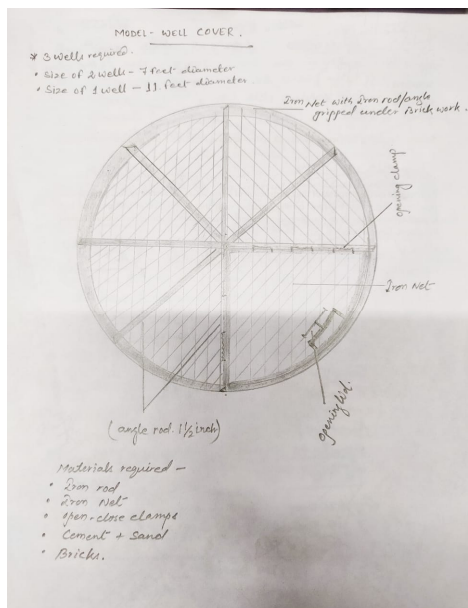 MODEL - WELL COVER.
* 3 wells required.
• Size of 2 wells - 7 feet diameter
• Size of 1 well - 11 feet diameter
Iron Net with Iron rod/angle
gripped under Brick work.
opening clamp
Iron Net
opening lid.
(angle rod. 1 1/2 inch)
Materials required -
• Iron rod
• Iron Net
• open-close clamps
• Cement + Sand
• Bricks.